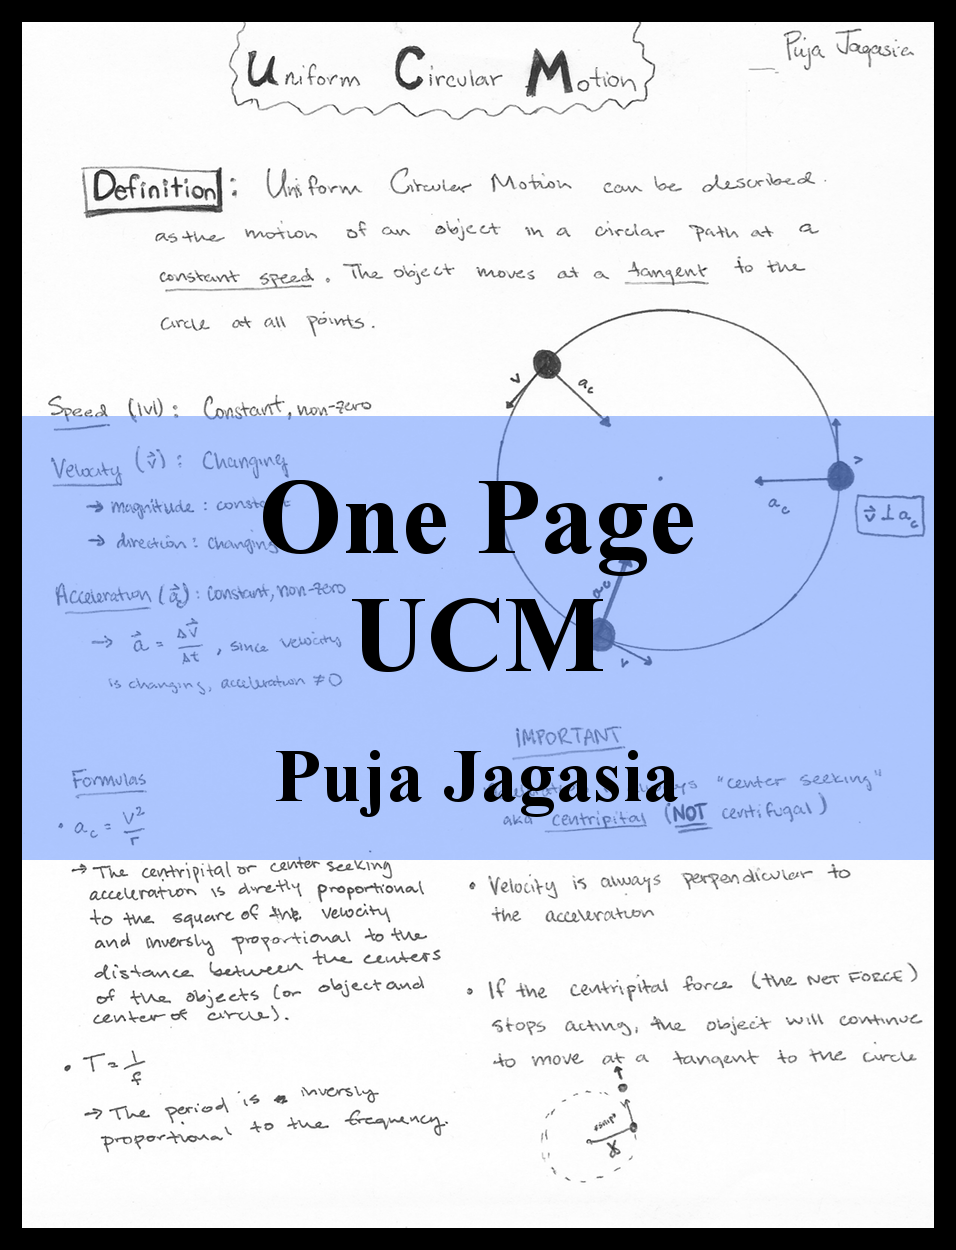 Uniform Circular Motion
Puja Jagasia
Definition: Uniform Circular Motion can be described
as the motion of an object in a circlar path at a
constant speed. The object moves at a tangent to the
circle at all points.
Speed (|v|): Constant, non-zero
Velocity (v⃗): Changing
→ magnitude: constant
→ direction: changing
Acceleration (a⃗c): constant, non-zero
→ a⃗ = Δv⃗/Δt, since velocity
is changing, acceleration ≠ 0
v
ac
v
ac
v⃗ ⊥ ac
ac
v
One Page
UCM
Puja Jagasia
Formulas
• ac = v²/r
→ The centripital or center seeking
acceleration is diretly proportional
to the square of the velocity
and inversly proportional to the
distance between the centers
of the objects (or object and
center of circle).
• T = 1/f
→ The period is inversly
proportional to the frequency.
IMPORTANT
always "center seeking"
aka centripital (NOT centifugal)
• Velocity is always perpendicular to
the acceleration
• If the centripital force (the NET FORCE)
stops acting, the object will continue
to move at a tangent to the circle
*snip*